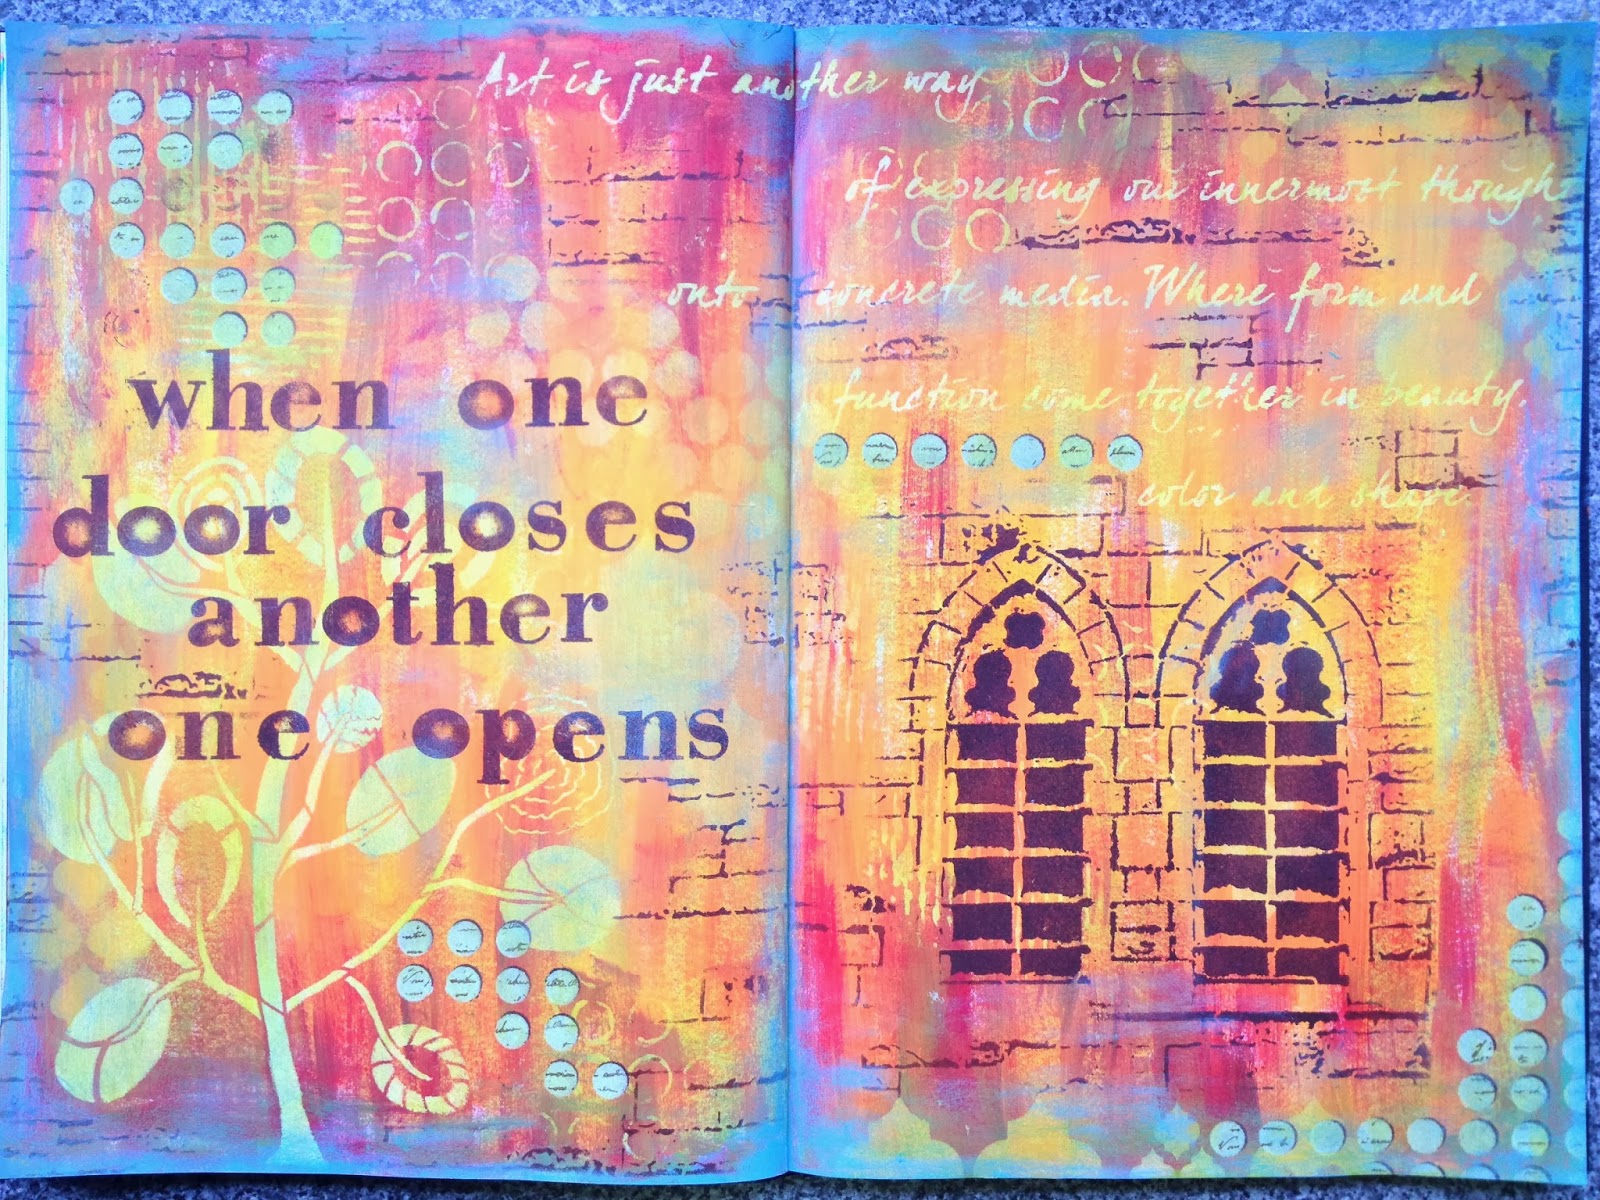 Art is just another way
of expressing our innermost though
onto concrete media. Where form and
function come together in beauty.
color and shape
when one
door closes
another
one opens